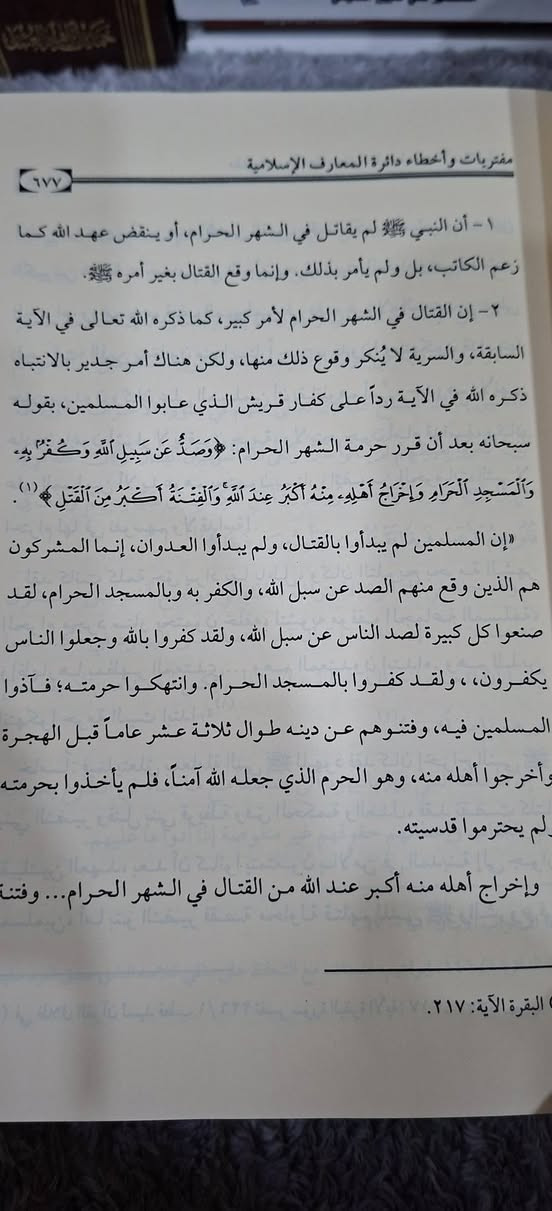 مفتريات وأخطاء دائرة المعارف الإسلامية
٦٧٧
١- أن النبي ﷺ لم يقاتل في الشهر الحرام، أو ينقض عهد الله كما
زعم الكاتب، بل ولم يأمر بذلك. وإنما وقع القتال بغير أمره ﷺ.
٢- إن القتال في الشهر الحرام لأمر كبير، كما ذكره الله تعالى في الآية
السابقة، والسرية لا يُنكر وقوع ذلك منها، ولكن هناك أمر جدير بالانتباه
ذكره الله في الآية رداً على كفار قريش الذي عابوا المسلمين، بقوله
سبحانه بعد أن قرر حرمة الشهر الحرام: ﴿وَصَدٌّ عَن سَبِيلِ ٱللَّهِ وَكُفْرٌۢ بِهِۦ
وَٱلْمَسْجِدِ ٱلْحَرَامِ وَإِخْرَاجُ أَهْلِهِۦ مِنْهُ أَكْبَرُ عِندَ ٱللَّهِ ۚ وَٱلْفِتْنَةُ أَكْبَرُ مِنَ ٱلْقَتْلِ﴾(١).
«إن المسلمين لم يبدأوا بالقتال، ولم يبدأوا العدوان، إنما المشركون
هم الذين وقع منهم الصد عن سبل الله، والكفر به وبالمسجد الحرام، لقد
صنعوا كل كبيرة لصد الناس عن سبل الله، ولقد كفروا بالله وجعلوا الناس
يكفرون، ، ولقد كفروا بالمسجد الحرام. وانتهكوا حرمته؛ فآذوا
المسلمين فيه، وفتنوهم عن دينه طوال ثلاثة عشر عاماً قبل الهجرة
وأخرجوا أهله منه، وهو الحرم الذي جعله الله آمناً، فلم يأخذوا بحرمته
ولم يحترموا قدسيته.
وإخراج أهله منه أكبر عند الله من القتال في الشهر الحرام... وفتنة
) البقرة الآية: ٢١٧.